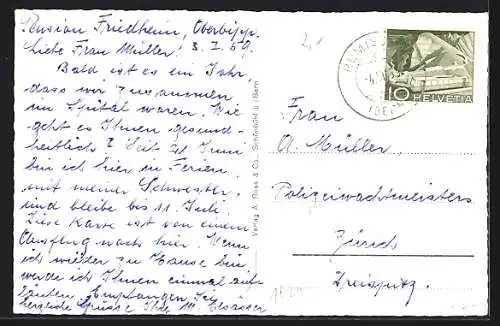 Pension Friedheim, Oberbipp.
Liebe Frau Müller! 3. I. 59.
Bald ist es ein Jahr,
dass wir zusammen
im Spital waren. Wie
geht es Ihnen gesund-
heitlich? Seit 21 Juni
bin ich hier in Ferien
mit meiner Schwester,
und bleibe bis 11. Juli.
Diese Karte ist von einem
Ausflug nach hier. Wenn
ich wieder zu Hause bin,
werde ich Ihnen einmal auf-
läuten. Empfangen Sie
herzliche Grüsse Ihre M.
Verlag A. Ross & Co., Schönbühl b / Bern
RUMIS
(BE
10 HELVETIA
Frau
A. Müller,
Polizeiwachtmeisters
Zürich
Dreispitz.